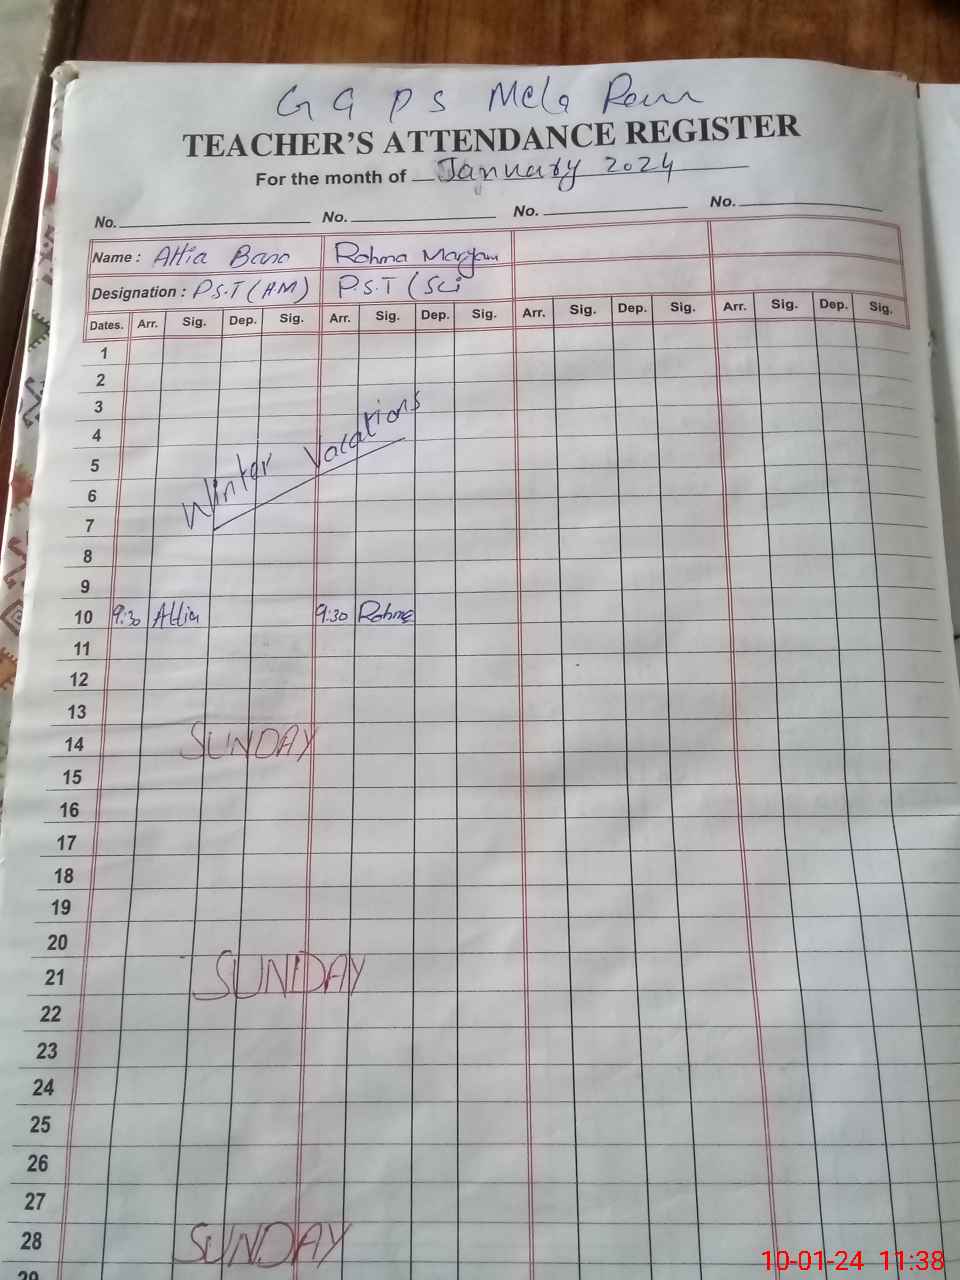 G G P S Mela Ram
TEACHER'S ATTENDANCE REGISTER
For the month of January 2024
No. No. No. No.
Name : Attia Bano Rahma Maryam
Designation : P.S.T (HM) P.S.T (Sci
Dates. Arr. Sig. Dep. Sig. Arr. Sig. Dep. Sig. Arr. Sig. Dep. Sig. Arr. Sig. Dep. Sig.
1
2
3
4
5
Winter Vacations
6
7
8
9
10 9:30 Attia 9:30 Rahma
11
12
13
14 SUNDAY
15
16
17
18
19
20
21 SUNDAY
22
23
24
25
26
27
28 SUNDAY
29
10-01-24 11:38